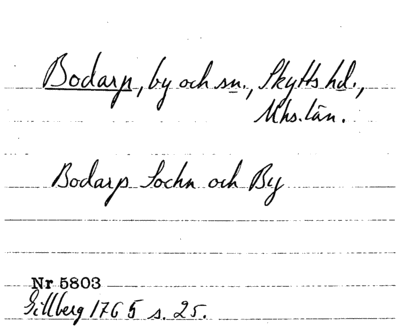 Bodarp, by och sn., Skytts hd.,
Mhs. län.
Bodarps Sochn och By
Nr 5803
Gillberg 1765 s. 25.